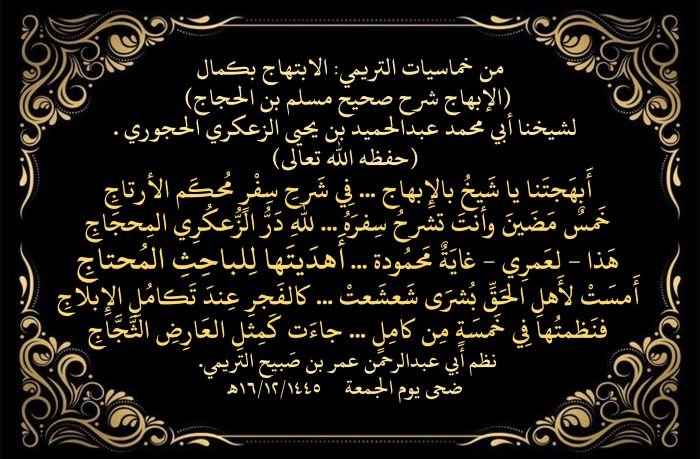 من خماسيات التريمي: الابتهاج بكمال
(الإبهاج شرح صحيح مسلم بن الحجاج)
لشيخنا أبي محمد عبدالحميد بن يحيى الزعكري الحجوري .
(حفظه الله تعالى)
أَبهَجتَنا يا شَيخُ بالإِبهاج ... فِي شَرح سِفْرٍ مُحكَم الأرتاجِ
خَمسٌ مَضَينَ وأنتَ تشرحُ سِفرَهُ ... للهِ دَرُّ الزُّعكُرِي المِحجَاجِ
هَذا - لعَمرِي - غايَةٌ مَحمُودة ... أَهدَيتَها لِلباحِثِ المُحتاجِ
أَمسَتْ لأَهلِ الحَقِّ بُشرَى شَعشَعتْ ... كالفَجرِ عِندَ تَكامُلِ الإِبلاجِ
فنَظمتُها فِي خَمسَةٍ مِن كامِلٍ ... جاءَت كَمِثلِ العَارِضِ الثَّجَّاجِ
نظم أبي عبدالرحمن عمر بن صَبيح التَّريمي.
ضحى يوم الجمعة ١٦/١٢/١٤٤٥هـ